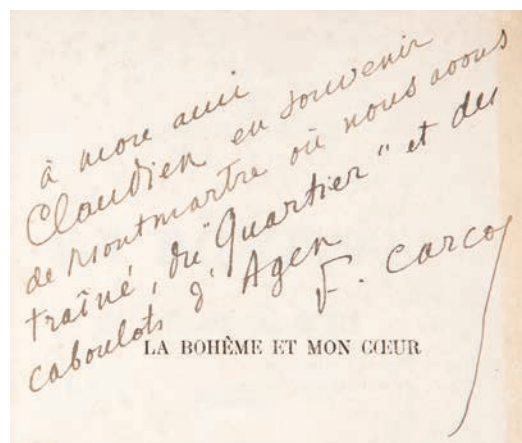 à mon ami
Claudien en souvenir
de Montmartre où nous avons
traîné, du "Quartier" et des
caboulots d'Agen
F. Carco
LA BOHÊME ET MON CŒUR